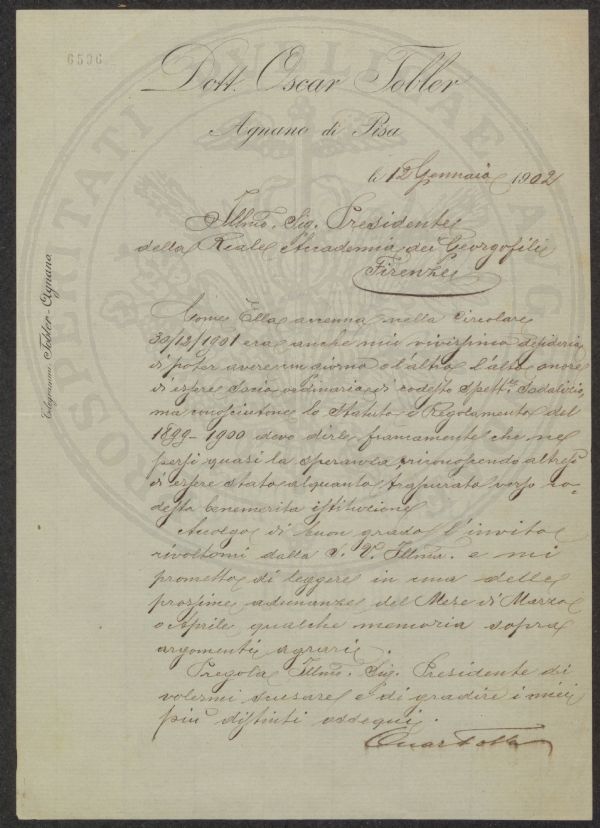 6506
Dott. Oscar Tobler
Agnano di Pisa
li 12 Gennaio 1902
Illmo. Sig. Presidente
della Reale Accademia dei Georgofili
Firenze
Telegrammi: Tobler-Agnano
Come Ella accenna nella Circolare
30/12/1901 era anche mio vivissimo desiderio
di poter avere un giorno o l'altro l'alto onore
di essere Socio ordinario di codesto Spett.le Sodalizio,
ma conosciutone lo Statuto e Regolamento del
1899-1900 devo dirle francamente che ne
persi quasi la speranza, riconoscendo altresì
di essere stato alquanto trascurato verso co-
desta benemerita istituzione
Accolgo di buon grado l'invito
rivoltomi dalla S. V. Illma. e mi
prometto di leggere in una delle
prossime adunanze del Mese di Marzo
o Aprile qualche memoria sopra
argomenti agrari.
Pregola Illmo. Sig. Presidente di
volermi scusare e di gradire i miei
più distinti ossequi.
Oscar Tobler
PROSPERITATI PUBLICAE AUGENDAE